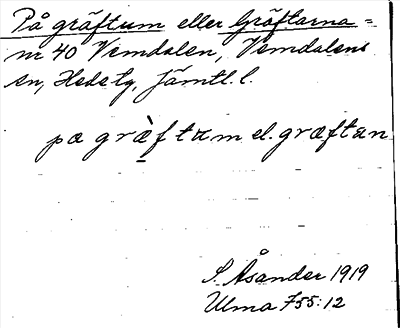 På gräftum eller Gräftarna =
nr 40 Vemdalen, Vemdalens
sn, Hede tg, Jämtl. l.
pa græ̀ftum el. græftan
S. Åsander 1919
Ulma 755:12